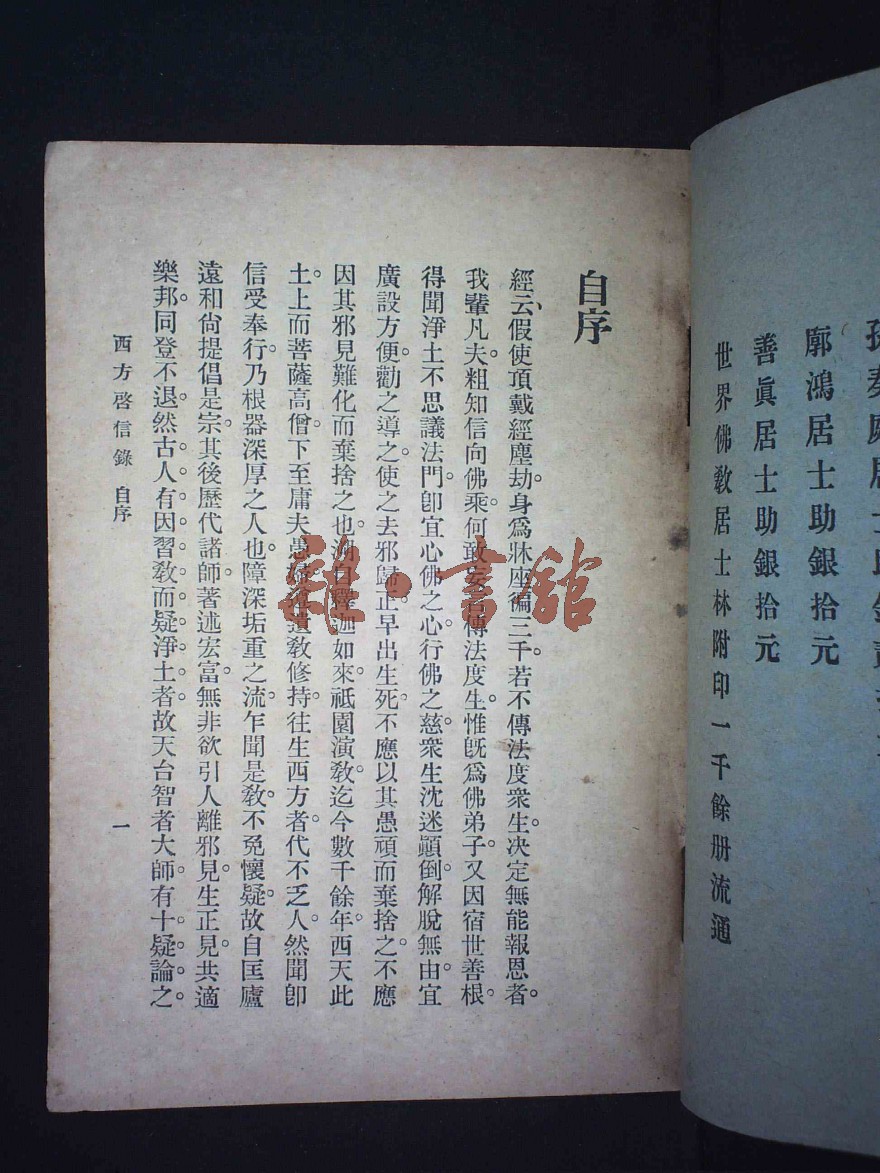 孫奏庭居士助銀
郭鴻居士助銀拾元
善眞居士助銀拾元
世界佛敎居士林附印一千餘册流通
自序
經云、假使頂戴經塵劫。身爲牀座徧三千。若不傳法度衆生。決定無能報恩者。
我輩凡夫。粗知信向佛乘。何敢妄言傳法度生。惟旣爲佛弟子。又因宿世善根。
得聞淨土不思議法門。卽宜心佛之心。行佛之慈。衆生沈迷顚倒。解脫無由。宜
廣設方便。勸之導之。使之去邪歸正。早出生死。不應以其愚頑而棄捨之。不應
因其邪見難化而棄捨之也。溯自釋迦如來。祇園演敎。迄今數千餘年。西天此
土。上而菩薩高僧。下至庸夫愚婦。遵遺敎修持。往生西方者。代不乏人。然聞卽
信受奉行。乃根器深厚之人也。障深垢重之流。乍聞是敎。不免懷疑。故自匡廬
遠和尙提倡是宗。其後歷代諸師。著述宏富。無非欲引人離邪見。生正見。共適
樂邦。同登不退。然古人有因習敎而疑淨土者。故天台智者大師。有十疑論之。
西方啓信錄 自序
一
雜·書館